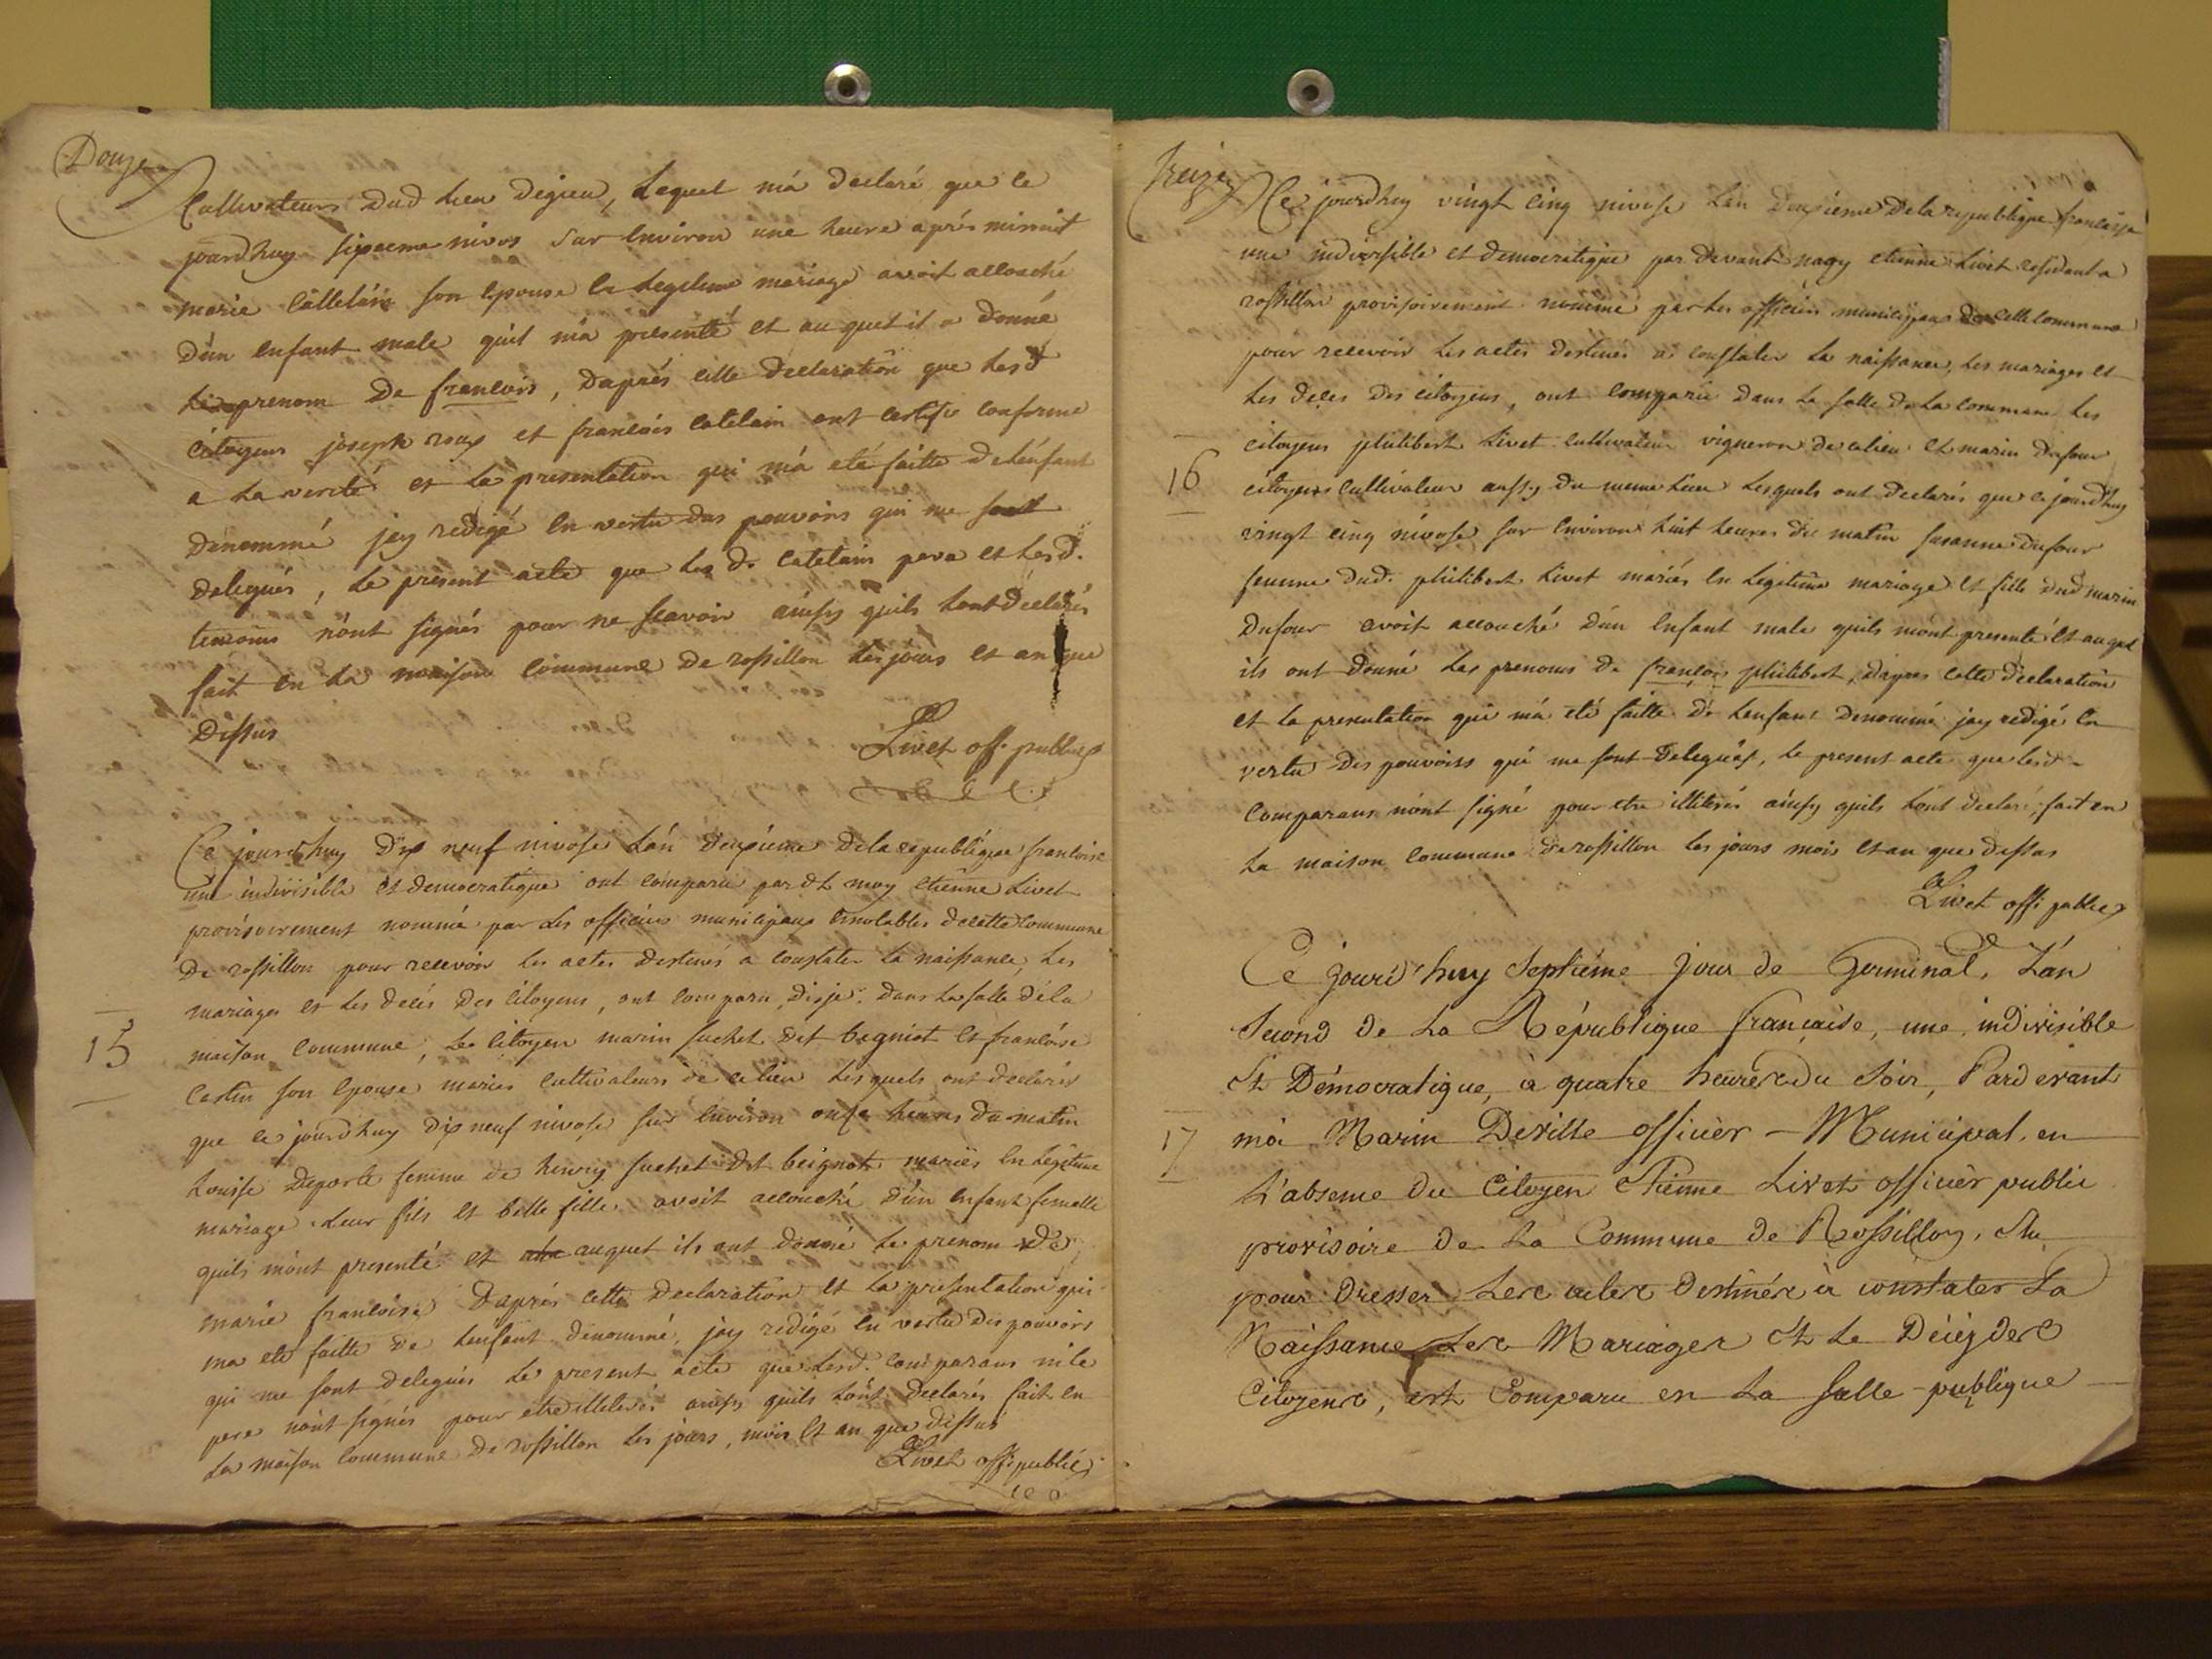 Douze
Cultivateurs dud lieu degieu, Lequel m'a declaré que ce
jourdhuy sixieme nivos sur Environ une heure après minuit
marie Cattelain son Epouse En Legitime mariage avoit accouché
d'un Enfant male qu'il m'a présenté et au quel il a donné
le prenom De francois, D'aprés cette declaration que lesd
Citoyens joseph roux et francois Catelain ont certifié conforme
a La verité et la presentation qui m'a eté faitte de L'enfant
denommé jay redigé En vertu des pouvoirs qui me sont
delegués, Le présent acte que Les d. Catelain pere et Lesd.
temoins n'ont signés pour ne scavoir ainsy quils L'ont declarés
fait En La maison Commune de rossillon Les jours et an que
Dessus
Livet off. public
Ce jourdhuy Dix neuf nivose L'an deuxieme de la republique francoise
une indivisible et democratique ont comparu pard.t moy etienne Livet
provisoirement nommé par Les officiers municipaux et notables de cette Commune
De rossillon pour recevoir Les actes destinés a Constater La naissance, Les
mariages et Les decés des Citoyens, ont comparu, disje, dans La salle de la
15
maison Commune, Le Citoyen marin suchet dit begniot et francoise
Castin son Epouse mariés Cultivateurs de ce lieu Lesquels ont declarés
que ce jourdhuy dix neuf nivose sur Environ onze heures du matin
Louise deporte femme de henry suchet dit beignot mariés En Legitime
mariage Leur fils et belle fille avoit accouché d'un Enfant femelle
quils m'ont presenté et auquel ils ont donné Le prenom de
marie francoise D'aprés cette declaration et La presentation qui
ma eté faitte de L'enfant denommé, jay redigé En vertu des pouvoirs
qui me sont delegués Le present acte que Lesd. Comparans ni le
pere n'ont signés pour etre illiterés ainsy quils L'ont declarés fait En
La maison Commune De rossillon Les jours, mois et an que dessus
Livet off. public
treize
Ce jourdhuy vingt Cinq nivose L'an deuxieme De la republique francaise
une indivisible et democratique par devant moy etienne Livet residant a
rossillon provisoirement nommé par Les officiers municipaux de cette Commune
pour recevoir Les actes destinés a Constater La naissance, Les mariages et
Les decés des Citoyens, ont comparu dans La salle de La commune Les
Citoyens philibert Livet Cultivateur vigneron de ce lieu et marin dufour
16
citoyens Cultivateur aussy du meme Lieu Lesquels ont declarés que cejourdhuy
vingt cinq nivose sur Environ huit heures du matin susanne dufour
femme dud. philibert Livet mariés En Legitime mariage et fille dud marin
Dufour avoit accouché d'un Enfant male quils mont presenté et auquel
ils ont donné Les prenoms de françois philibert, d'apres cette declaration
et la presentation qui m'a eté faitte de L'enfant denommé jay redigé En
vertu des pouvoirs qui me sont delegués, Le present acte que lesd.
Comparans n'ont signé pour etre illiterés ainsy quils L'ont declaré, fait en
La maison Commune de rossillon Les jours mois et an que dessus
Livet off. public
Ce jourd'huy Septième jour de Germinal, L'an
Second de La République française, une, indivisible
Et Démocratique, à quatre heures du Soir, Pardevant
17
moi Marin Deville officièr - Municipal, en
L'absence du Citoyen Etiènne Livet officièr public
provisoire de La Commune de Rossillon, Élu
pour Dresser Les actes Destinés à constater La
Naissance Les Mariages Et Le Décéz des
Citoyens, est Comparu en La Salle publique